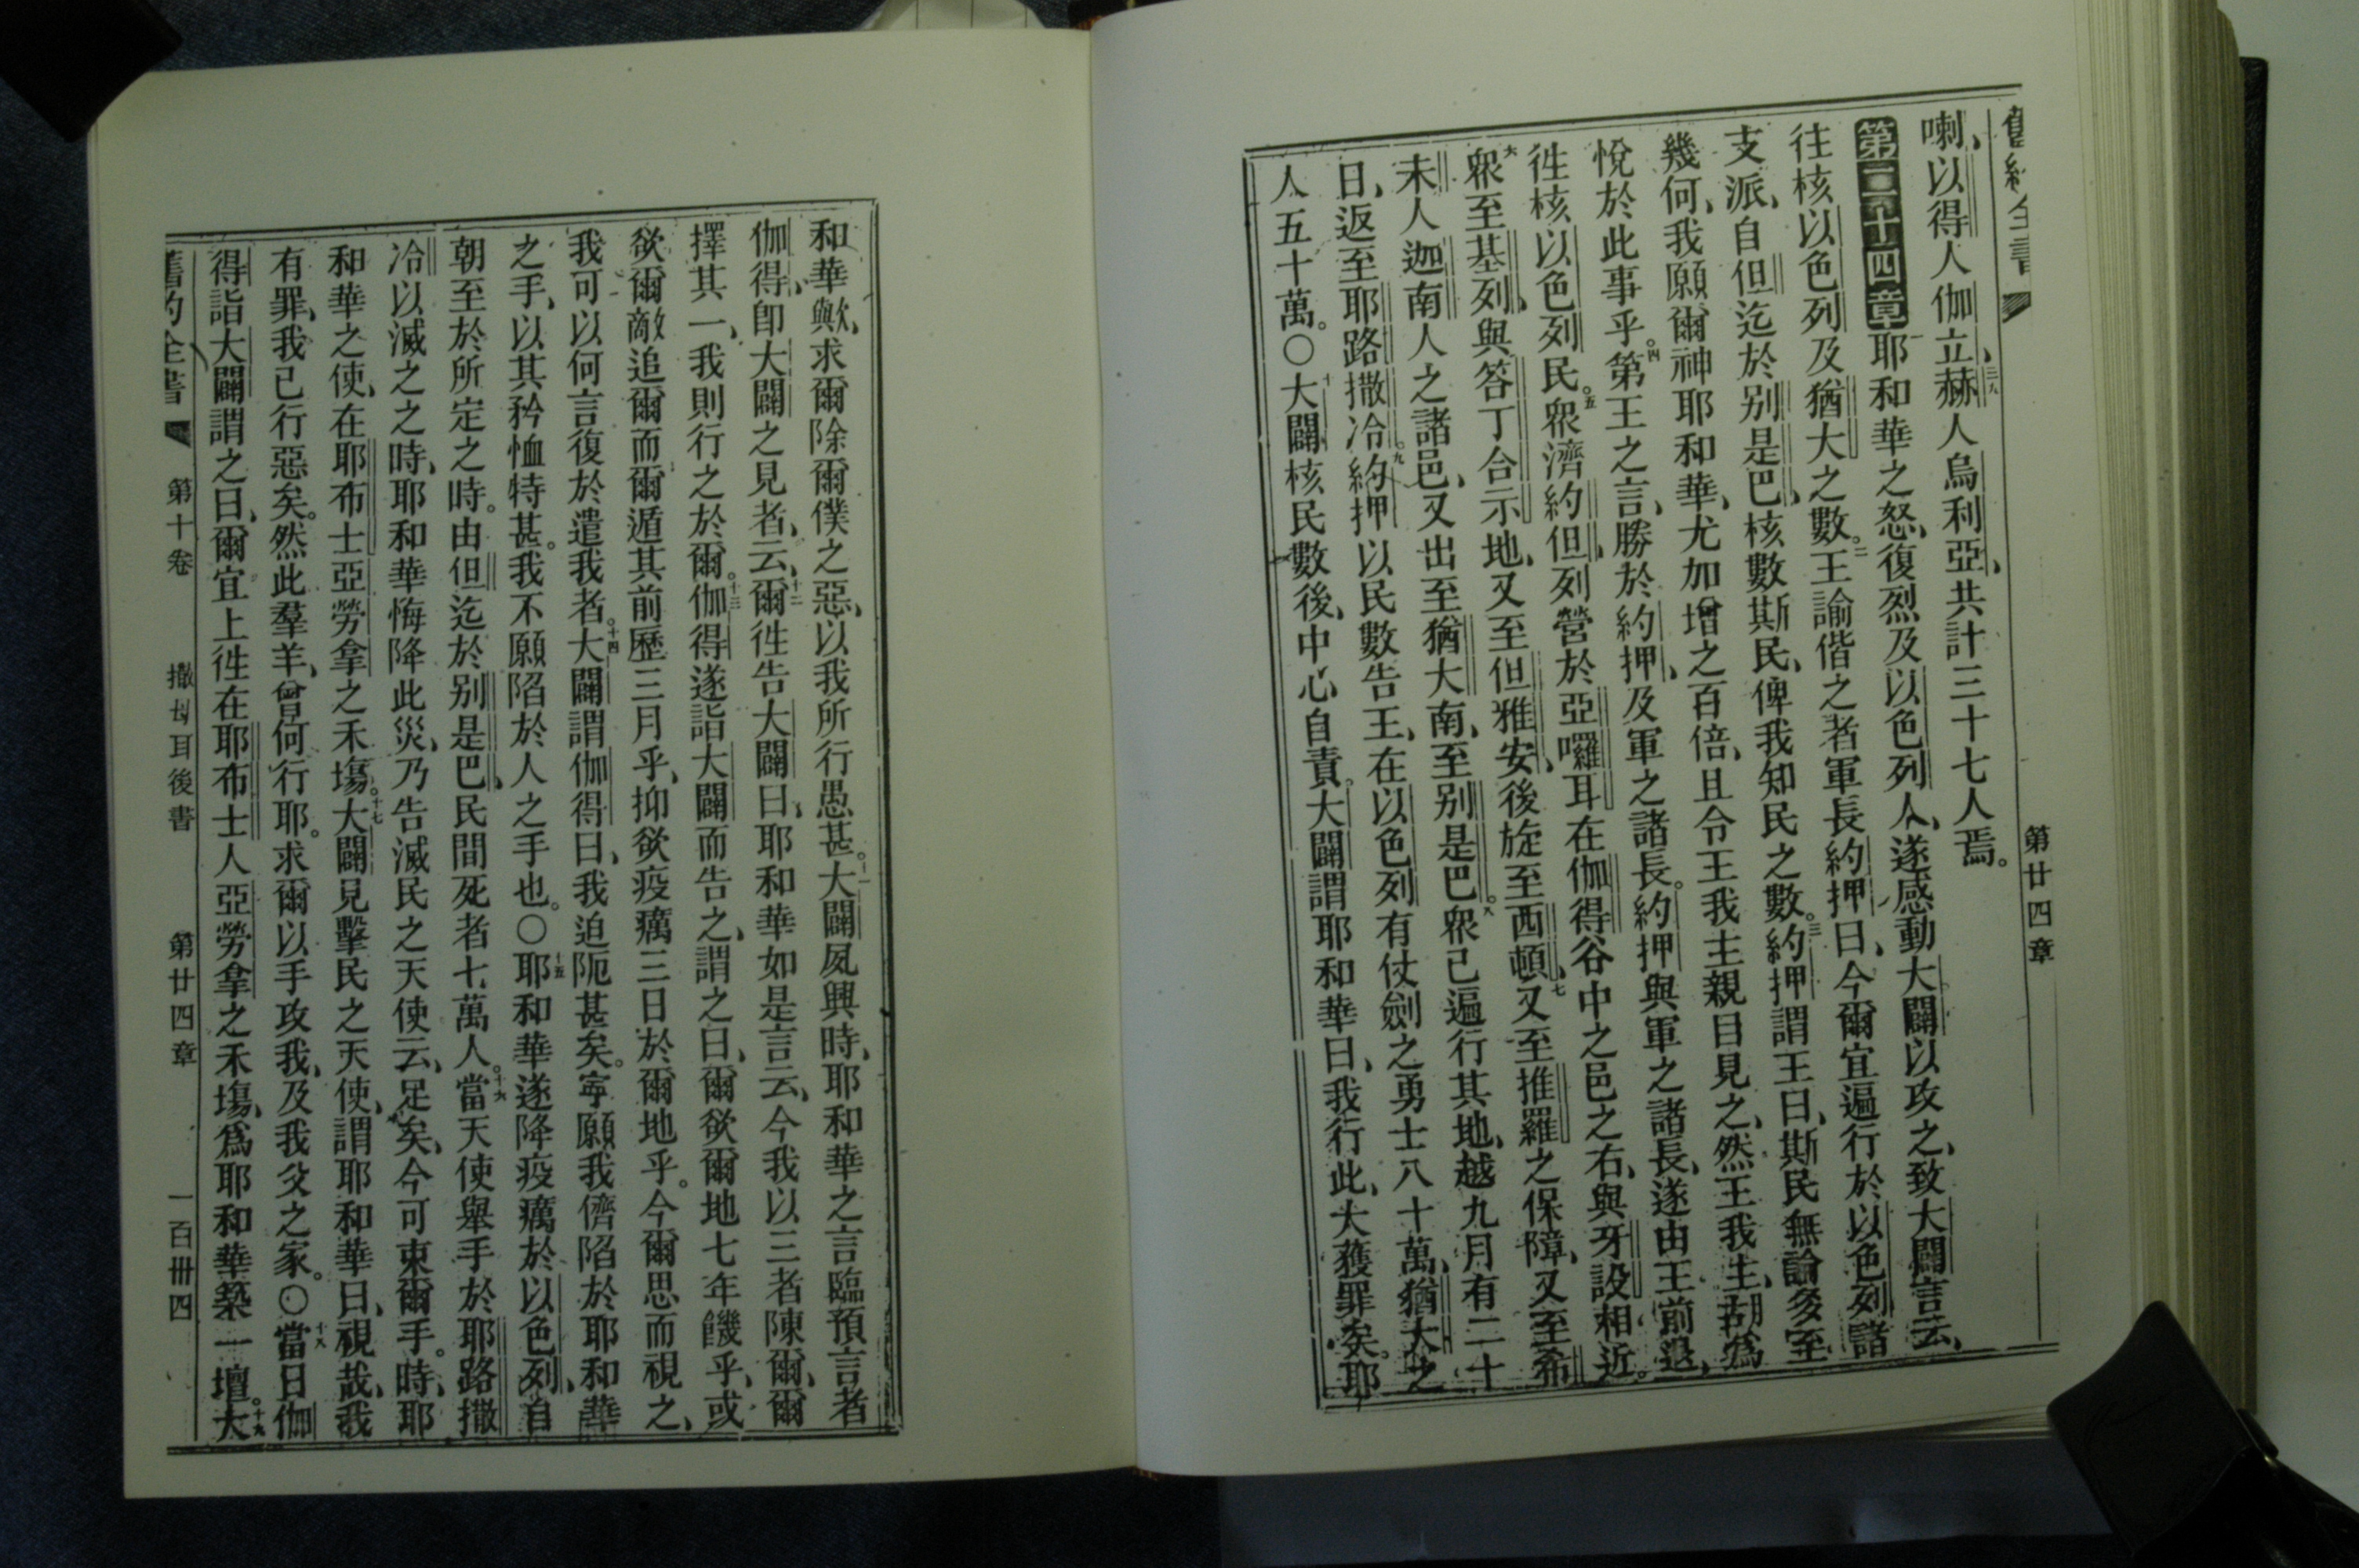 舊約全書
第廿四章
喇、以得人伽立、三九赫人烏利亞、共計三十七人焉。
第二十四章耶和華之怒、復烈及以色列人、遂感動大闢以攻之、致大闢言云、
往核以色列及猶大之數。二王諭偕之者軍長約押曰、今爾宜遍行於以色列諸
支派、自但迄於別是巴、核數斯民、俾我知民之數。三約押謂王曰、斯民無論多至
幾何、我願爾神耶和華、尤加增之百倍、且令王我主親目見之、然王我主、胡爲
悅於此事乎。四第王之言、勝於約押、及軍之諸長。約押與軍之諸長、遂由王前退、
徃核以色列民。五眾濟約但、列營於亞囉耳在伽得谷中之邑之右、與牙設相近。
六眾至基列、與答丁合示地、又至但雅安、後旋至西頓、七又至推羅之保障、又至希
未人迦南人之諸邑、又出至猶大南、至別是巴。八眾已遍行其地、越九月有二十
日、返至耶路撒冷。九約押以民數告王、在以色列有仗劍之勇士八十萬、猶大之
人五十萬。〇十大闢核民數後、中心自責。大闢謂耶和華曰、我行此、大獲罪矣。耶
和華歟、求爾除爾僕之惡、以我所行愚甚。十一大闢夙興時、耶和華之言臨預言者
伽得、即大闢之見者、云、十二爾徃告大闢曰、耶和華如是言云、今我以三者陳爾、爾
擇其一、我則行之於爾。十三伽得遂詣大闢而告之、謂之曰、爾欲爾地七年饑乎、或
欲爾敵追爾而爾遁其前歷三月乎、抑欲疫癘三日於爾地乎。今爾思而視之、
我可以何言復於遣我者。十四大闢謂伽得曰、我迫阨甚矣。寧願我儕陷於耶和華
之手、以其矜恤特甚。我不願陷於人之手也。〇十五耶和華遂降疫癘於以色列、自
朝至於所定之時。由但迄於別是巴、民間死者七萬人。十六當天使舉手於耶路撒
冷以滅之之時、耶和華悔降此災、乃告滅民之天使云、足矣、今可束爾手。時、耶
和華之使、在耶布士亞勞拿之禾塲。十七大闢見擊民之天使、謂耶和華曰、視哉、我
有罪、我已行惡矣。然此羣羊、曾何行耶。求爾以手攻我、及我父之家。〇十八當日伽
得詣大闢謂之曰、爾宜上徃在耶布士人亞勞拿之禾塲、爲耶和華築一壇。十九大
舊約全書
第十卷
撒母耳後書
第廿四章
一百卌四